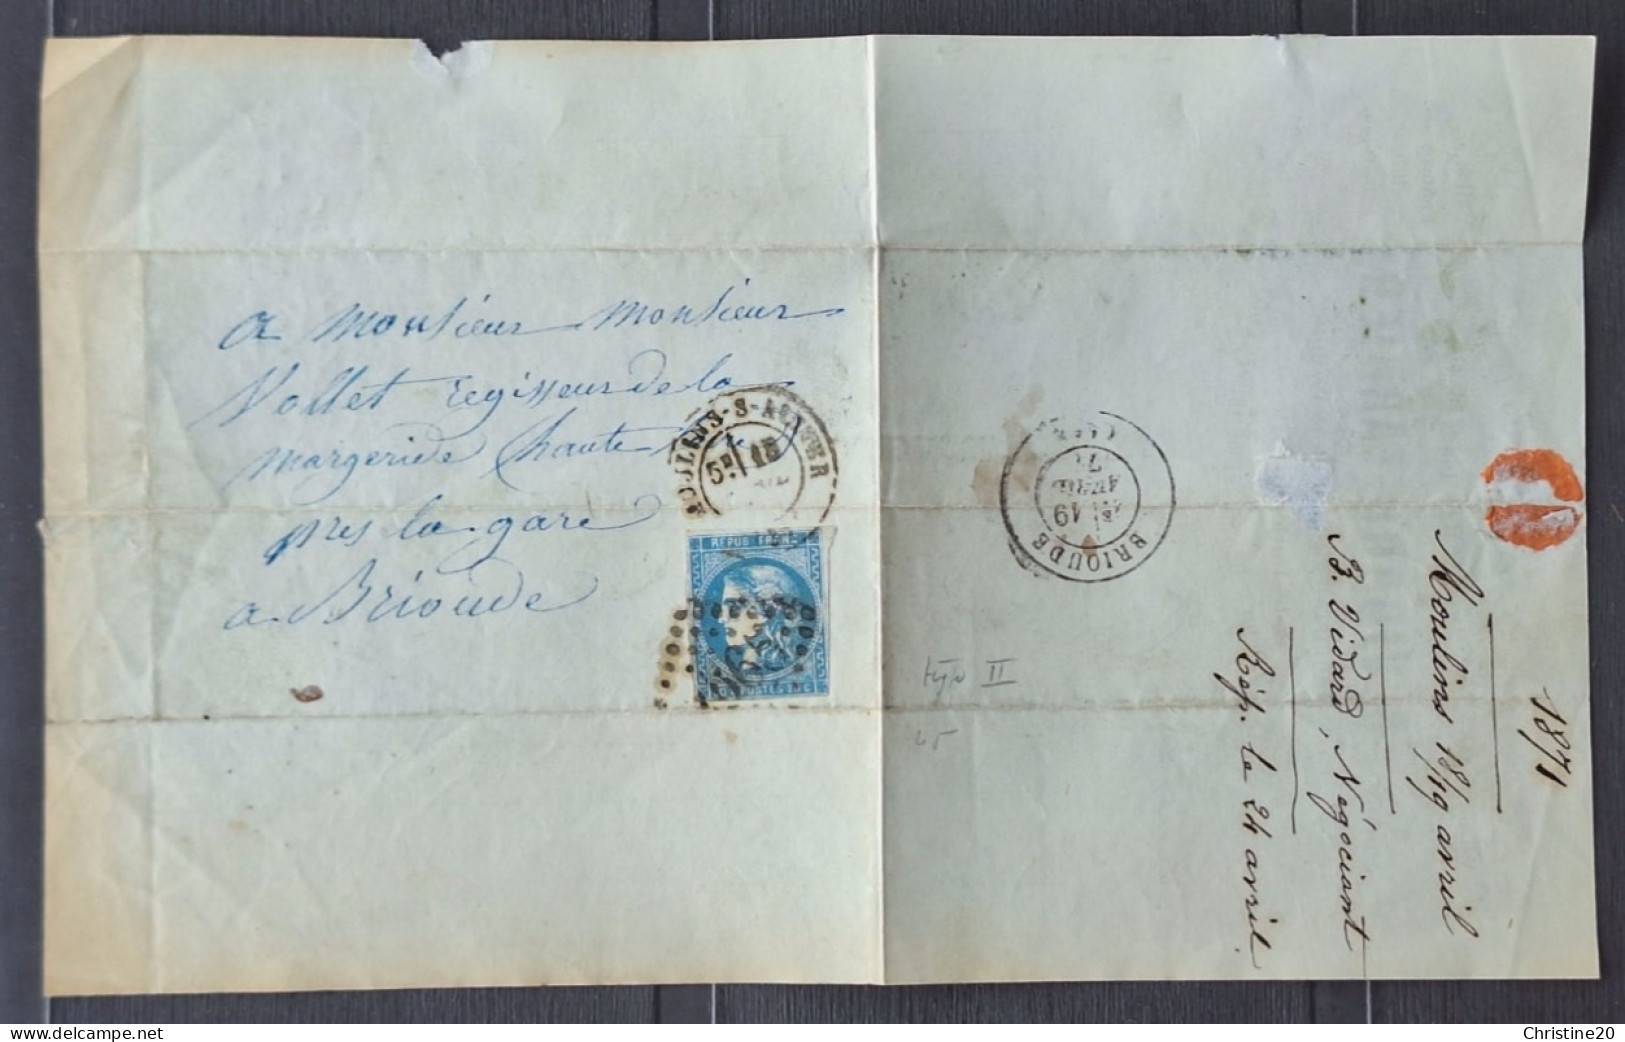 a Monsieur Monsieur
Vallet regisseur de la
margeride haute
près la gare
a Brioude
MOULINS-S-ALLIER
5E 18
REPUB FRANC
20c POSTES 20c
BRIOUDE
19
AVRIL
71
type II
1871
Moulins 18/19 avril
B. Vidard, Négociant
Rép. le 24 avril.
Christine20